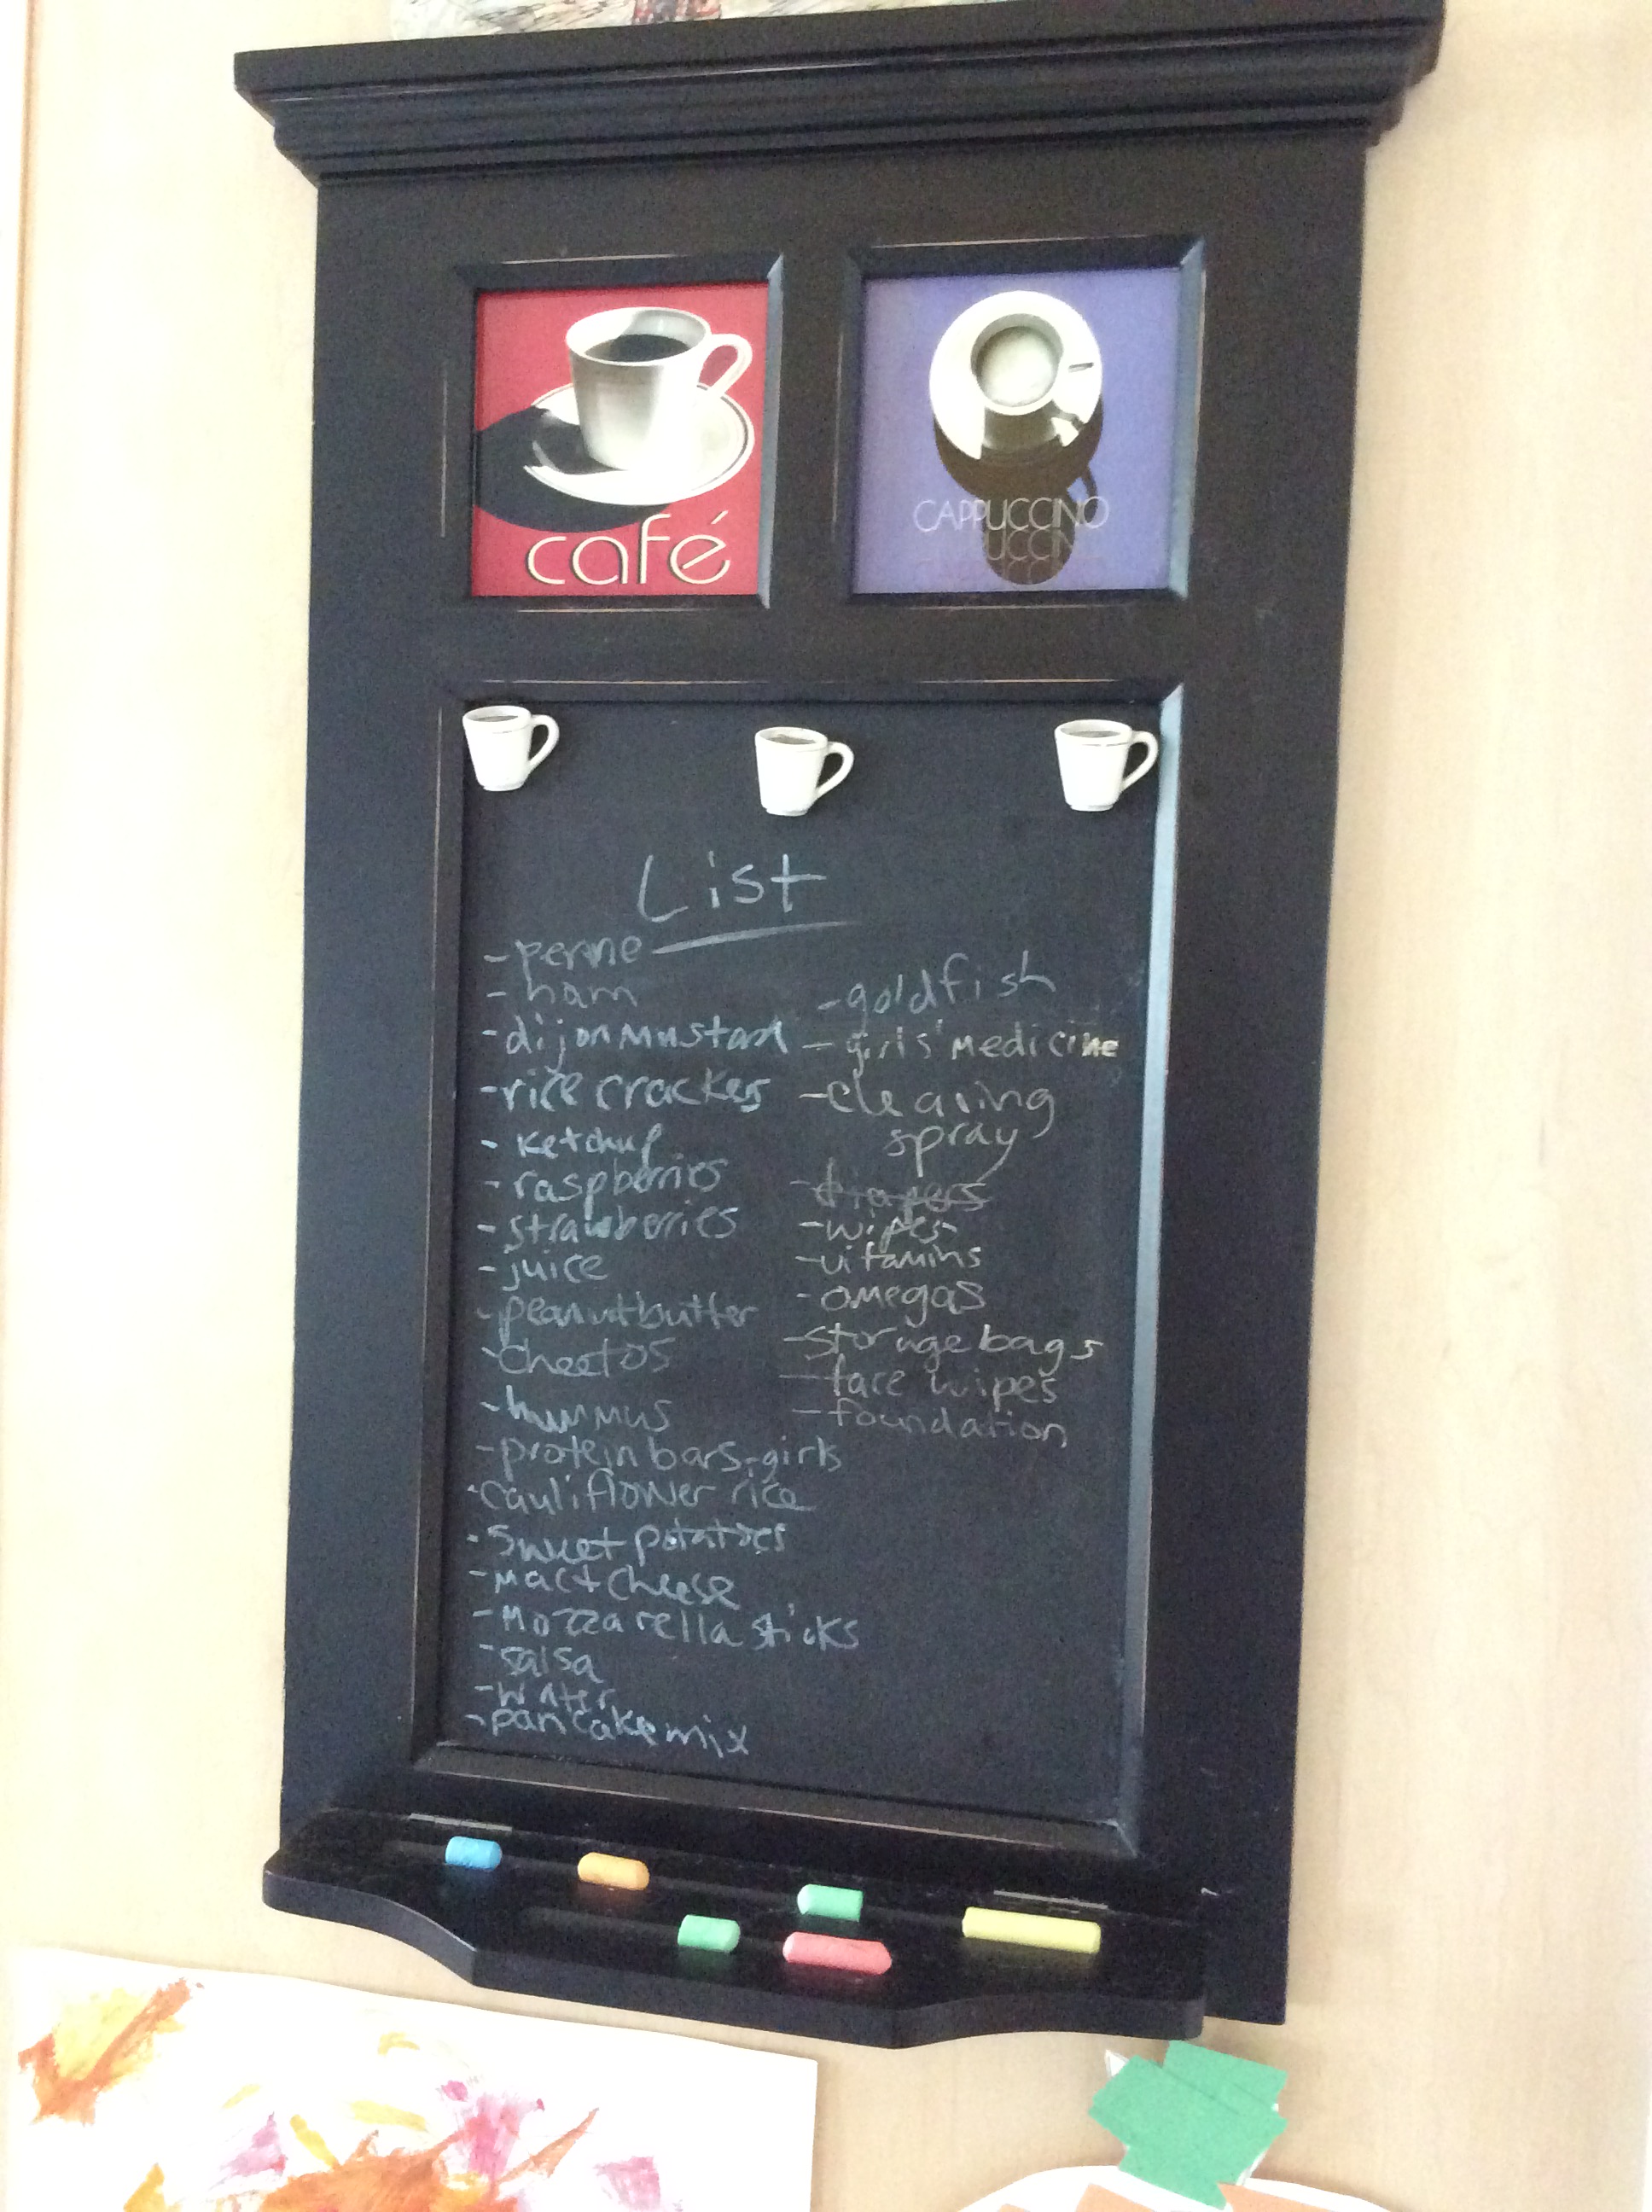 café
CAPPUCCINO
List
- penne
- ham
- dijon mustard
- rice crackers
- ketchup
- raspberries
- strawberries
- juice
- peanut butter
- cheetos
- hummus
- protein bars-girls
- cauliflower rice
- sweet potatoes
- mac + cheese
- mozzarella sticks
- salsa
- water
- pancake mix
- goldfish
- girls' medicine
- cleaning
spray
- diapers
- wipes
- vitamins
- omegas
- storage bags
- face wipes
- foundation